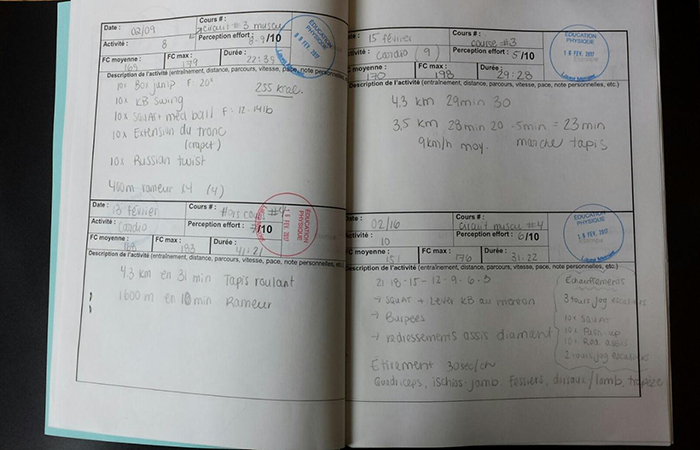 Date : 02/09
Cours # : circuit #3 muscu
Activité : 8
Perception effort : 8-9/10
FC moyenne : 169
FC max : 179
Durée : 22:39
Description de l'activité (entraînement, distance, parcours, vitesse, pace, note personnelles, etc.)
10x Box jump F: 20"
255 kcal
10x KB Swing
10x Squat + med ball F: 12-14lb
10x Extension du tronc
10x Russian twist
400m rameur
ÉDUCATION PHYSIQUE
FEV. 2017
Date : 13 février
Cours # : Hors cours #4
Activité : cardio
Perception effort : 7/10
FC moyenne :
FC max : 183
Durée : 41:21
Description de l'activité (entraînement, distance, parcours, vitesse, pace, note personnelles, etc.)
4.3 km en 31 min Tapis roulant
1600 m en 10 min Rameur
ÉDUCATION PHYSIQUE
FEV. 2017
Date : 15 février
Cours # : course #3
Activité : cardio (9)
Perception effort : 5/10
FC moyenne : 170
FC max : 198
Durée : 29:28
Description de l'activité (entraînement, distance, parcours, vitesse, pace, note personnelles, etc.)
4.3 km 29min 30
3,5 km 28 min 20 - 5min = 23min
9km/h moy. marche tapis
ÉDUCATION PHYSIQUE
16 FEV. 2017
Date : 02/16
Cours # : circuit muscu #4
Activité : 10
Perception effort : 6/10
FC moyenne : 151
FC max : 176
Durée : 31:22
Description de l'activité (entraînement, distance, parcours, vitesse, pace, note personnelles, etc.)
21-18-15-12-9-6-3
→ Squat + Lever KB au menton
→ Burpees
→ redressements assis diamant
Étirement 30sec/ch
Quadriceps, ischios-jamb. Fessiers, dorsaux/lomb, trapèze
Échauffements
3 tours jog
10x Squat
10x Push-up
10x Red. assis
2 tours jog
ÉDUCATION PHYSIQUE
FEV. 2017